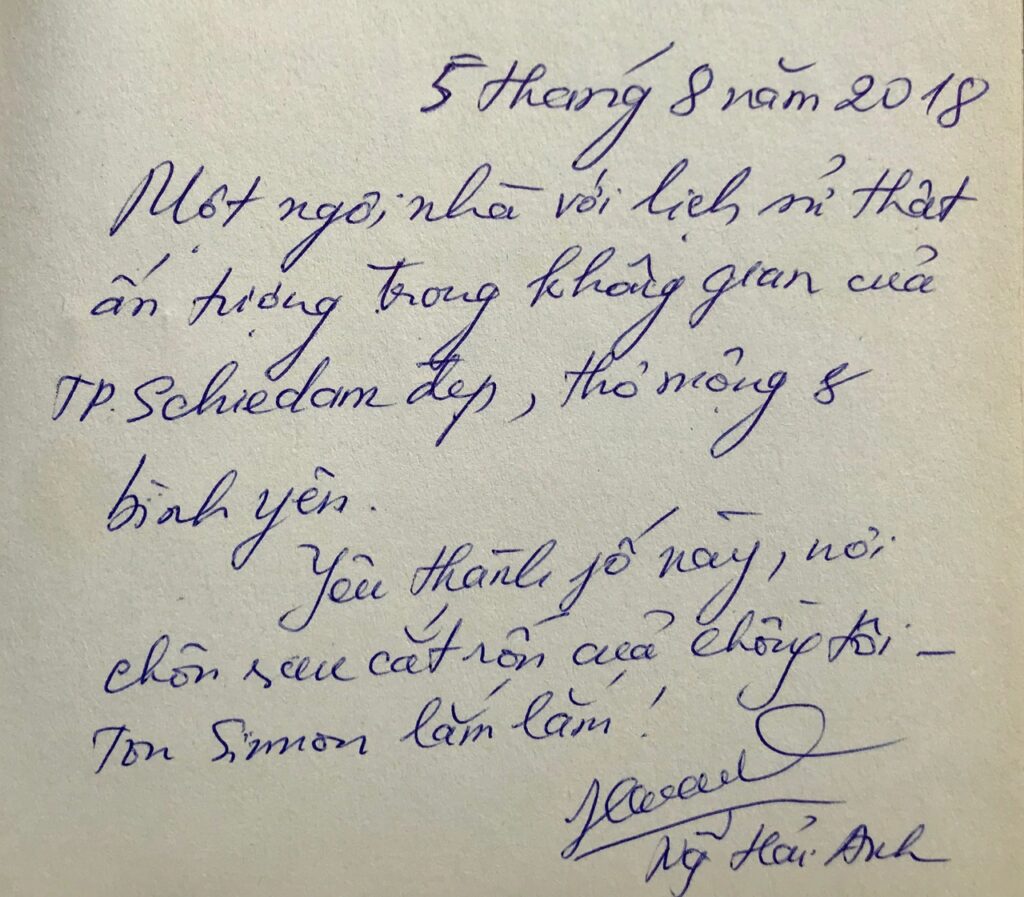 5 tháng 8 năm 2018
Một ngôi nhà với lịch sử thật
ấn tượng trong không gian của
TP. Schiedam đẹp, thơ mộng &
bình yên.
Yêu thành phố này, nơi
chôn rau cắt rốn của chồng tôi –
Ton Simmon lắm lắm!
Ng Hải Anh